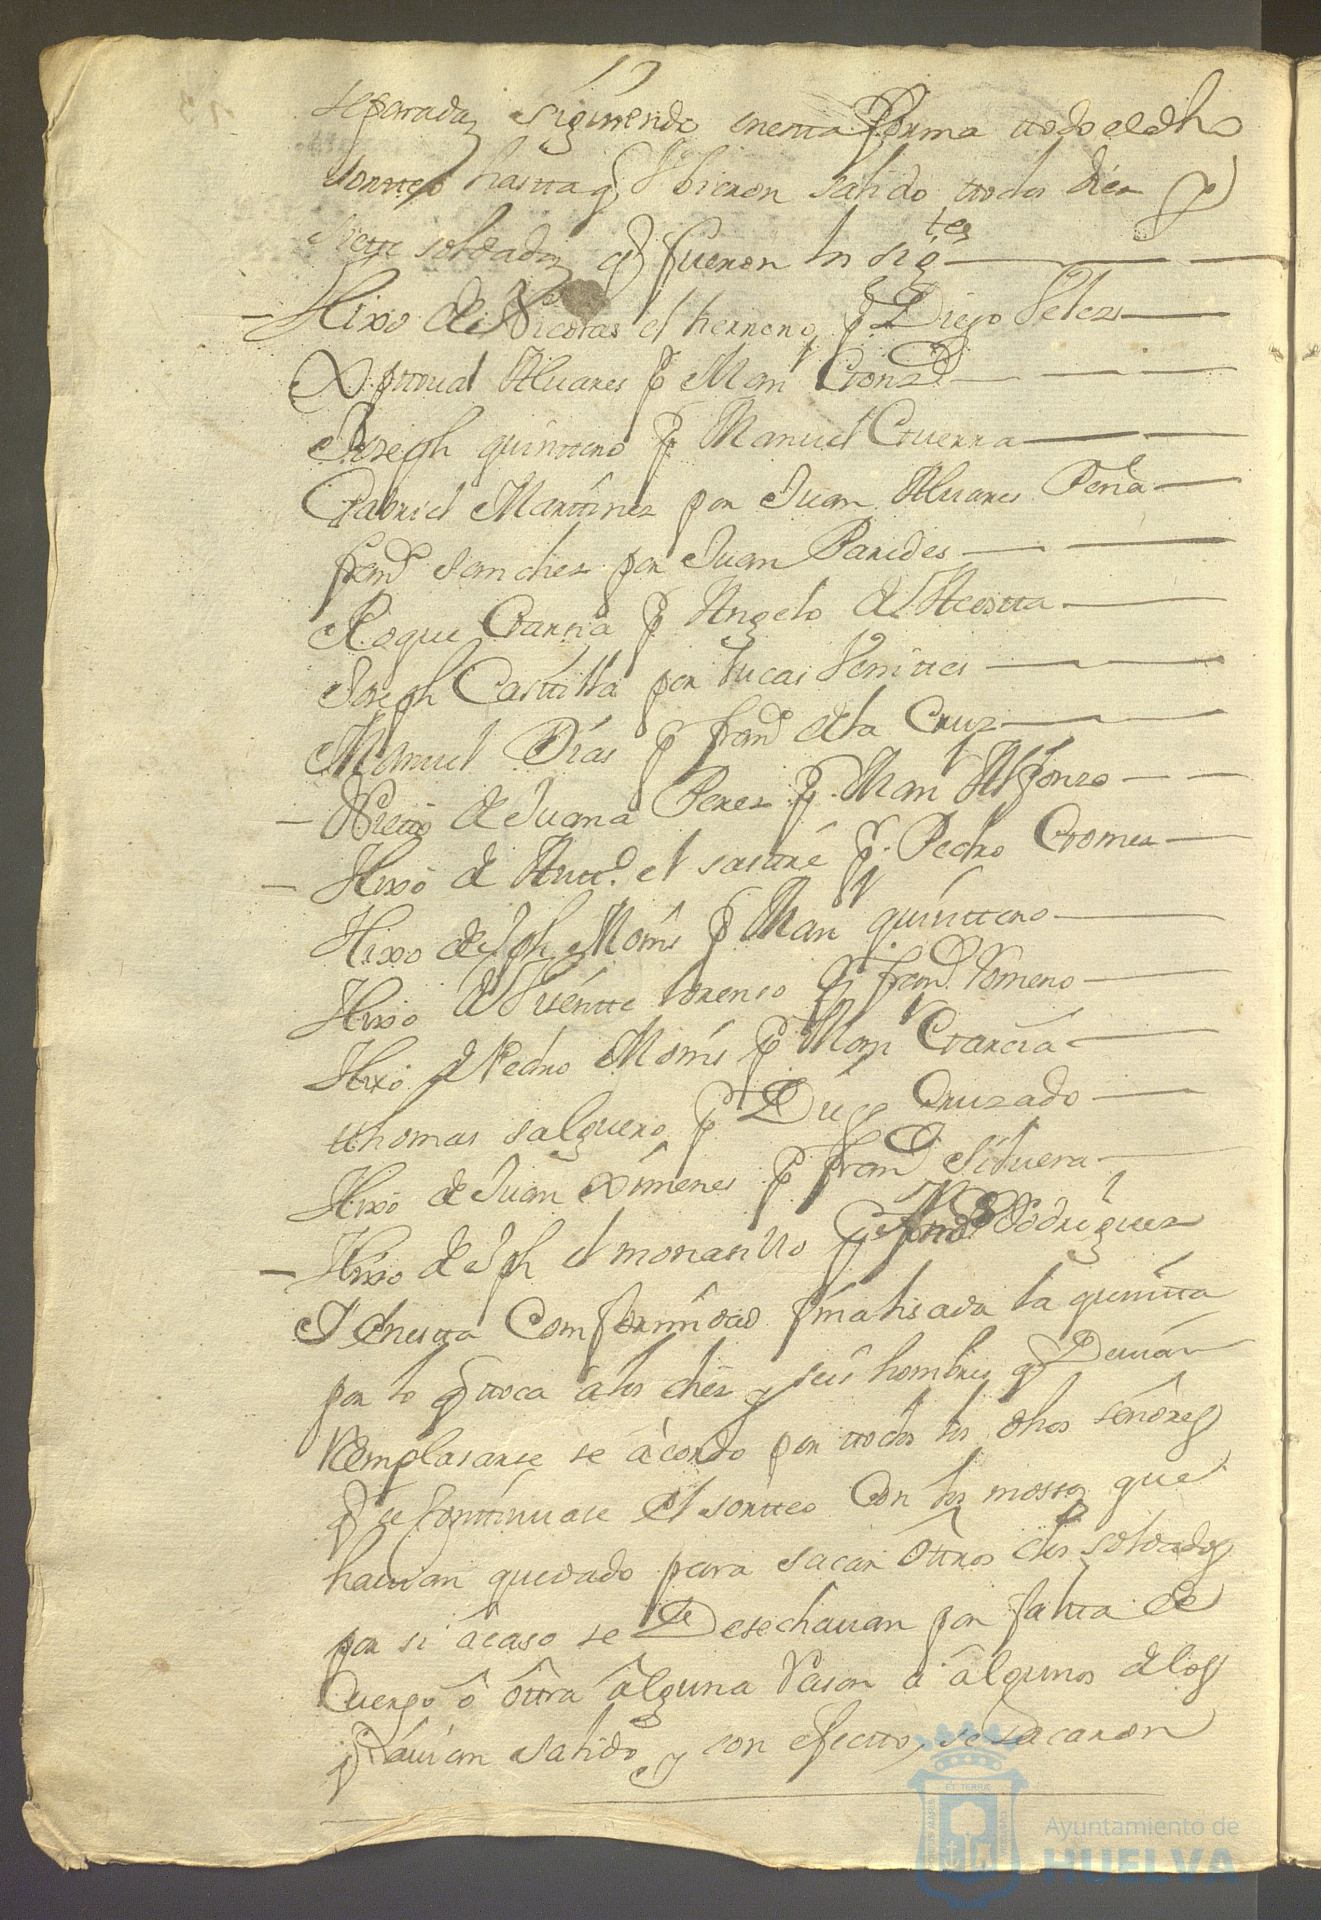 separadas siguiendo enesta forma ttodo el dho
sortteo hastta q Vbieron salido ttodos diez y
siette soldados q fueron los sigtes
Hixo de Nicolas el herrero, p Diego Velez
Xpttoual Aluares p Manl Gonzs
Joseph quinttero p Manuel Guerra
Gabriel Marttinez por Juan Aluares Peña
franco sanchez por Juan Paredes
Roque Garsia p Angelo de Acostta
Joseph Casttilla por lucas Venittes
Manuel Días p franco de la Cruz
Nietto de Juana Perez p Manl Alfonzo
Hixo de Antto el sastre p Pedro Gomez
Hixo de Jph Moñis p Manl quinttero
Hixo de Visentte lorenso p franco Romero
Hixo de Pedro Moñis p Manl Garcia
thomas salguero p Diego Cruzado
Hixo de Juan Ximenes p franco Siluera
Hixo de Jph el monasillo p Rodriguez
Y enestta Comformidad finalisada la quintta
por lo q ttoca â los diez y seis hombres q Deuían
Remplasarse se acordo por ttodos los dhos señores
q se Conttinuase el sortteo Con los mossos que
hauian quedado para sacar ôttros dos soldados
por si âcaso se Desechauan por faltta de
Cuerpo ô ôttra âlguna Rason a âlgunos de los
q hauian salido y con efectto, se sacaron
ET TERRAE
Ayuntamiento de
HUELVA